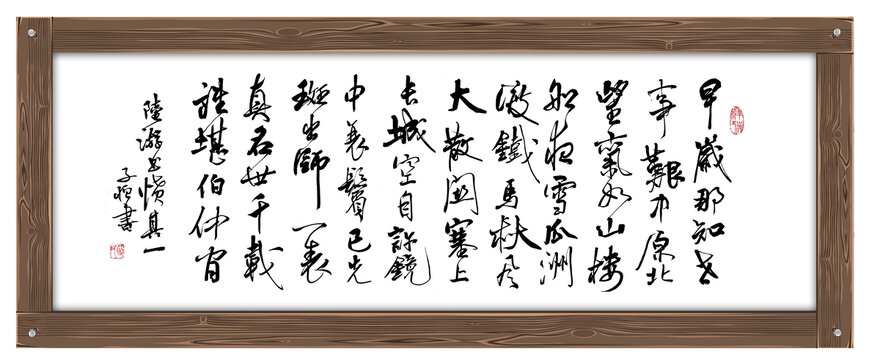 早歲那知世
事艱中原北
望氣如山樓
船夜雪瓜洲
渡鐵馬秋風
大散關塞上
長城空自許鏡
中衰鬢已先
斑出師一表
真名世千載
誰堪伯仲間
陸游書憤其一